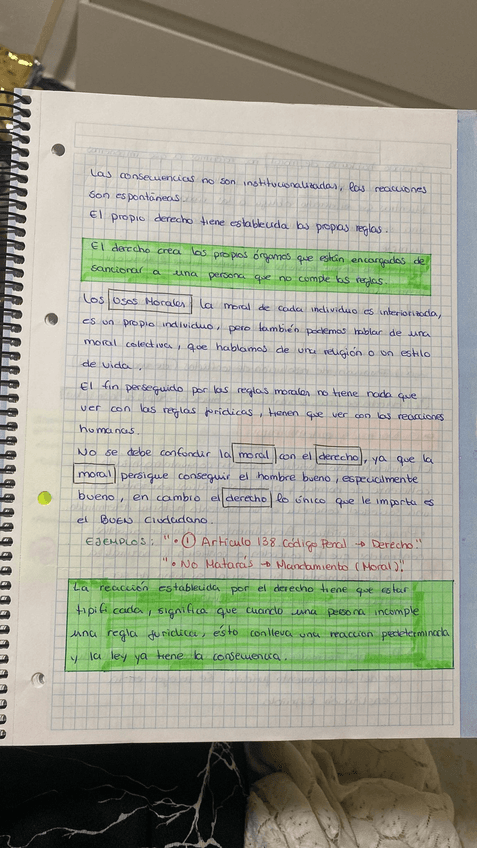 Las consecuencias no son institucionalizadas, las reacciones
son espontáneas.
El propio derecho tiene establecida las propias reglas.
El derecho crea los propios órganos que están encargados de
sancionar a una persona que no cumple las reglas.
Los Usos Morales la moral de cada individuo es interiorizada,
es un propio individuo, pero también podemos hablar de una
moral colectiva, que hablamos de una religión o un estilo
de vida.
El fin perseguido por las reglas morales no tiene nada que
ver con las reglas jurídicas, tienen que ver con las reacciones
humanas.
No se debe confundir la moral con el derecho, ya que la
moral persigue conseguir el hombre bueno, especialmente
bueno, en cambio el derecho lo único que le importa es
el BUEN ciudadano.
EJEMPLOS: "• ① Artículo 138 Código Penal → Derecho."
"• No Matarás → Mandamiento (Moral)."
La reacción establecida por el derecho tiene que estar
tipificada, significa que cuando una persona incumple
una regla jurídica, esto conlleva una reacción predeterminada
y la ley ya tiene la consecuencia.